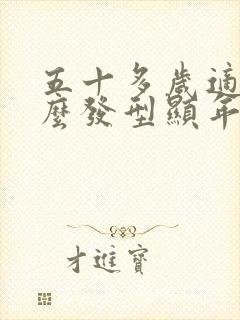 五十多歲適
麼發型顯年
才進寶